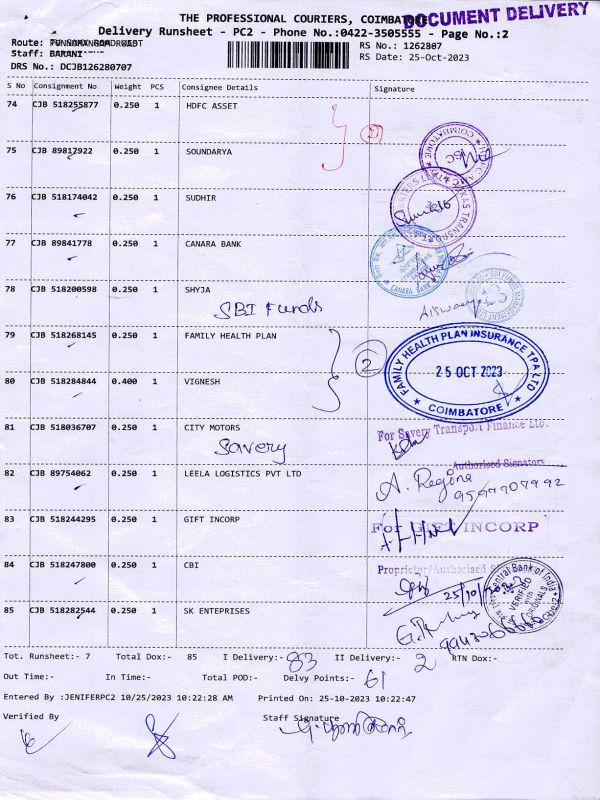 THE PROFESSIONAL COURIERS, COIMBATORE
DOCUMENT DELIVERY
Delivery Runsheet - PC2 - Phone No.:0422-3505555 - Page No.:2
Route:
RS No.: 1262807
Staff: BARANI
RS Date: 25-Oct-2023
DRS No.: DCJB126280707
S No Consignment No Weight PCS Consignee Details Signature
74 CJB 518255877 0.250 1 HDFC ASSET
75 CJB 89817922 0.250 1 SOUNDARYA
COIMBATORE
76 CJB 518174042 0.250 1 SUDHIR
77 CJB 89841778 0.250 1 CANARA BANK
CANARA BANK
78 CJB 518200598 0.250 1 SHYJA
SBI Funds
79 CJB 518268145 0.250 1 FAMILY HEALTH PLAN
2
FAMILY HEALTH PLAN INSURANCE TPA LTD
25 OCT 2023
COIMBATORE
80 CJB 518284844 0.400 1 VIGNESH
81 CJB 518036707 0.250 1 CITY MOTORS
Savery
For Savery Transport Finance Ltd.
Authorised Signatory
82 CJB 89754062 0.250 1 LEELA LOGISTICS PVT LTD
A. Regina
9597707992
83 CJB 518244295 0.250 1 GIFT INCORP
For GIFT INCORP
Proprietor/Authorised
84 CJB 518247800 0.250 1 CBI
25/10/2023
Central Bank of India
VERIFIED
with
ORIGINALS
85 CJB 518282544 0.250 1 SK ENTEPRISES
Tot. Runsheet:- 7 Total Dox:- 85 I Delivery:- 83 II Delivery:- 2 RTN Dox:-
Out Time:- In Time:- Total POD:- Delvy Points:- 61
Entered By :JENIFERPC2 10/25/2023 10:22:28 AM Printed On: 25-10-2023 10:22:47
Verified By Staff Signature